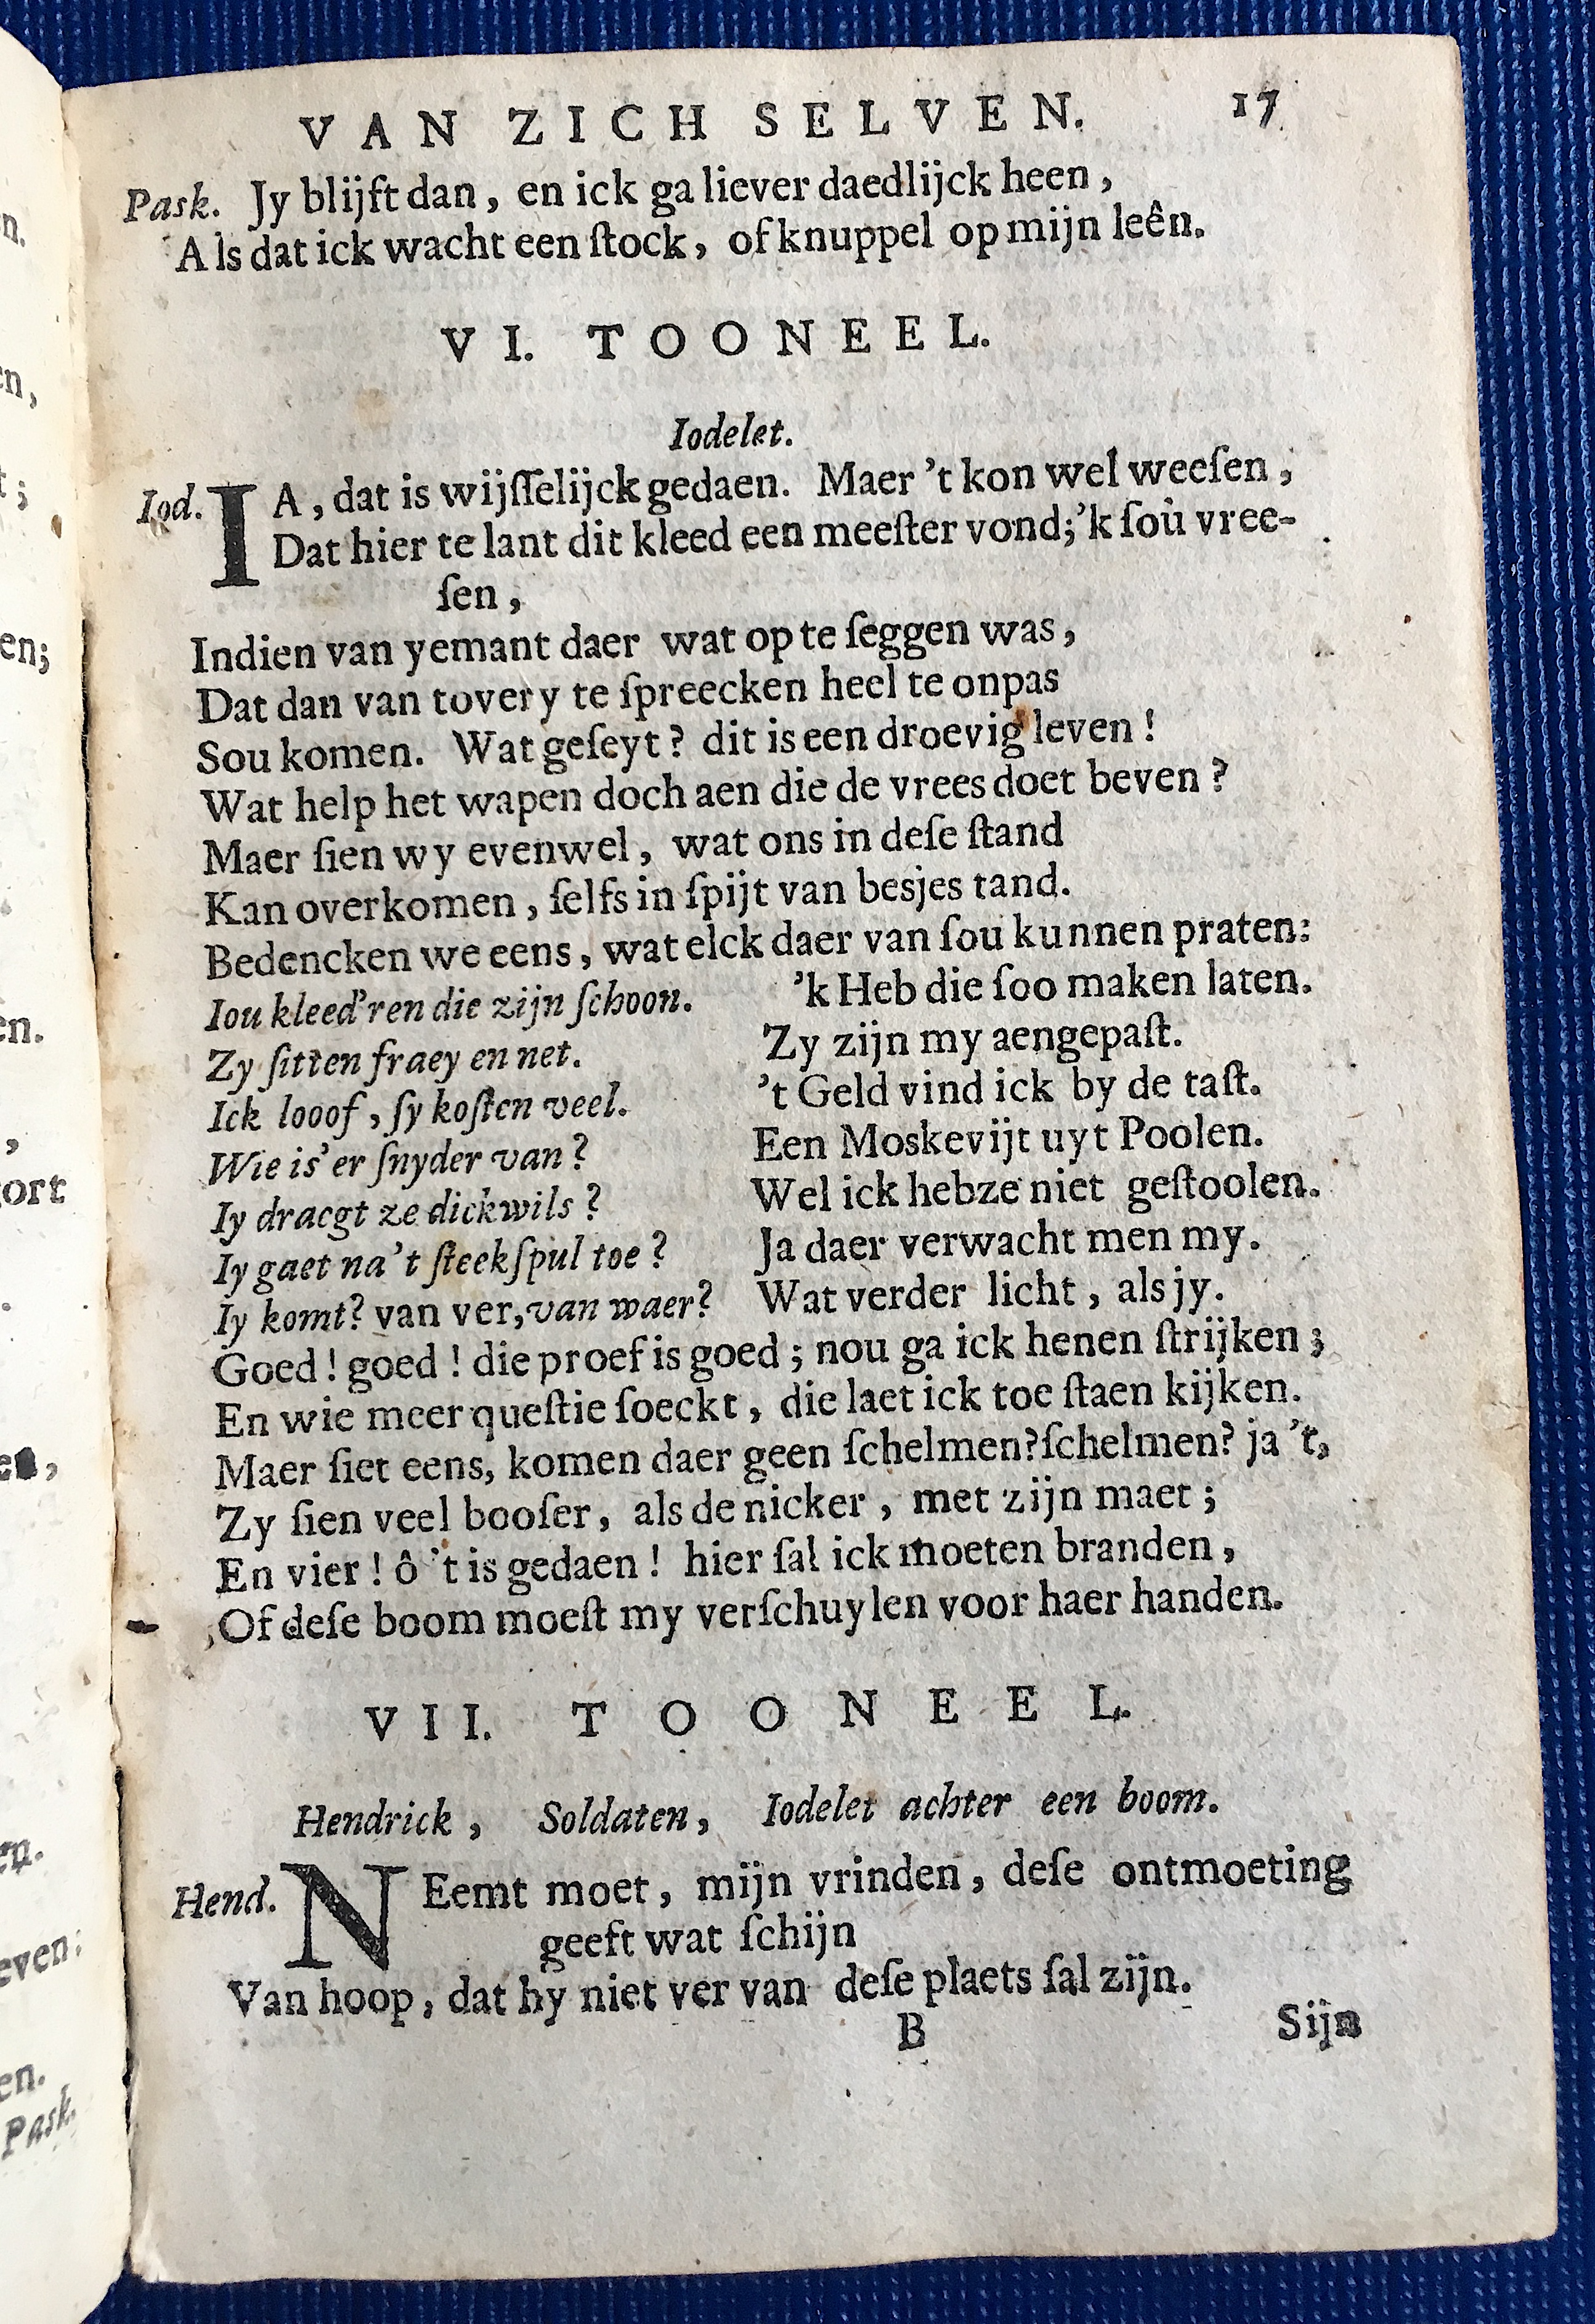 VAN ZICH SELVEN. 17
Pask. Jy blijft dan, en ick ga liever daedlijck heen,
Als dat ick wacht een ſtock, of knuppel op mijn leên.
VI. TOONEEL.
Iodelet.
Iod. IA, dat is wijſſelijck gedaen. Maer 't kon wel weeſen,
Dat hier te lant dit kleed een meeſter vond;'k ſoù vree-
ſen,
Indien van yemant daer wat op te ſeggen was,
Dat dan van tovery te ſpreecken heel te onpas
Sou komen. Wat geſeyt? dit is een droevig leven!
Wat help het wapen doch aen die de vrees doet beven?
Maer ſien wy evenwel, wat ons in deſe ſtand
Kan overkomen, ſelfs in ſpijt van besjes tand.
Bedencken we eens, wat elck daer van ſou kunnen praten:
Iou kleed'ren die zijn ſchoon. 'k Heb die ſoo maken laten.
Zy ſitten fraey en net. Zy zijn my aengepaſt.
Ick looof, ſy koſten veel. 't Geld vind ick by de taſt.
Wie is'er ſnyder van? Een Moskevijt uyt Poolen.
Iy draegt ze dickwils? Wel ick hebze niet geſtoolen.
Iy gaet na't ſteekſpul toe? Ja daer verwacht men my.
Iy komt? van ver, van waer? Wat verder licht, als jy.
Goed! goed! die proef is goed; nou ga ick henen ſtrijken;
En wie meer queſtie ſoeckt, die laet ick toe ſtaen kijken.
Maer ſiet eens, komen daer geen ſchelmen?ſchelmen? ja 't,
Zy ſien veel booſer, als de nicker, met zijn maet;
En vier! ô 't is gedaen! hier ſal ick moeten branden,
Of deſe boom moeſt my verſchuylen voor haer handen.
VII. TOONEEL.
Hendrick, Soldaten, Iodelet achter een boom.
Hend. NEemt moet, mijn vrinden, deſe ontmoeting
geeft wat ſchijn
Van hoop, dat hy niet ver van deſe plaets ſal zijn.
B Sijn